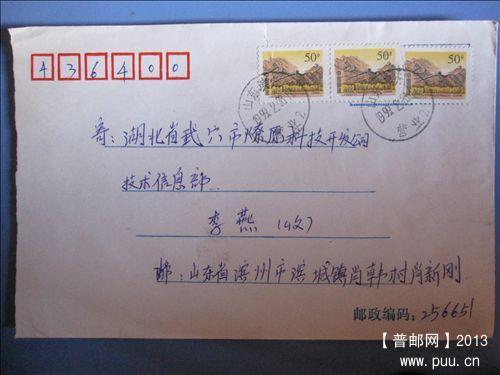 50分 50分 50分
436400
寄：湖北省武穴市燎原科技开发公司
技术信息部
李燕（收）
邮：山东省滨州市滨城镇肖韩村肖新刚
邮政编码：256651
【普邮网】2013
www.puu.cn